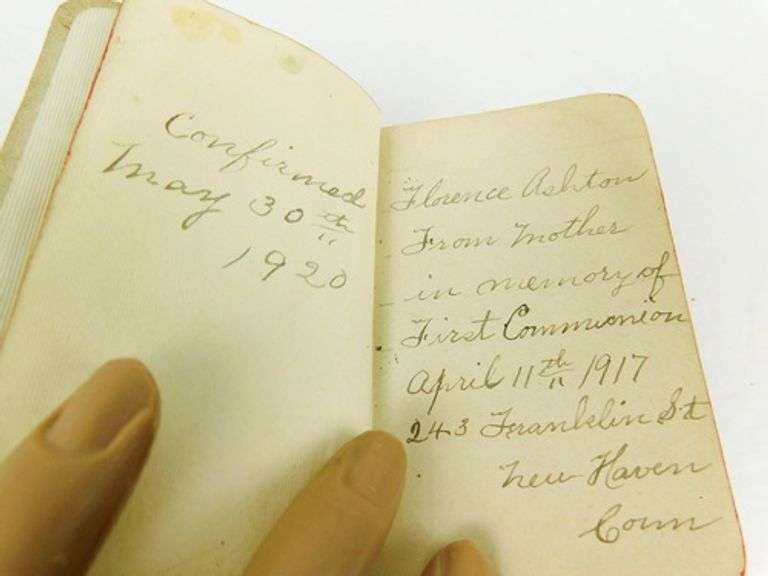 Confirmed
May 30th
1920
Florence Ashton
From Mother
in memory of
First Communion
April 11th 1917
243 Franklin St
New Haven
Conn